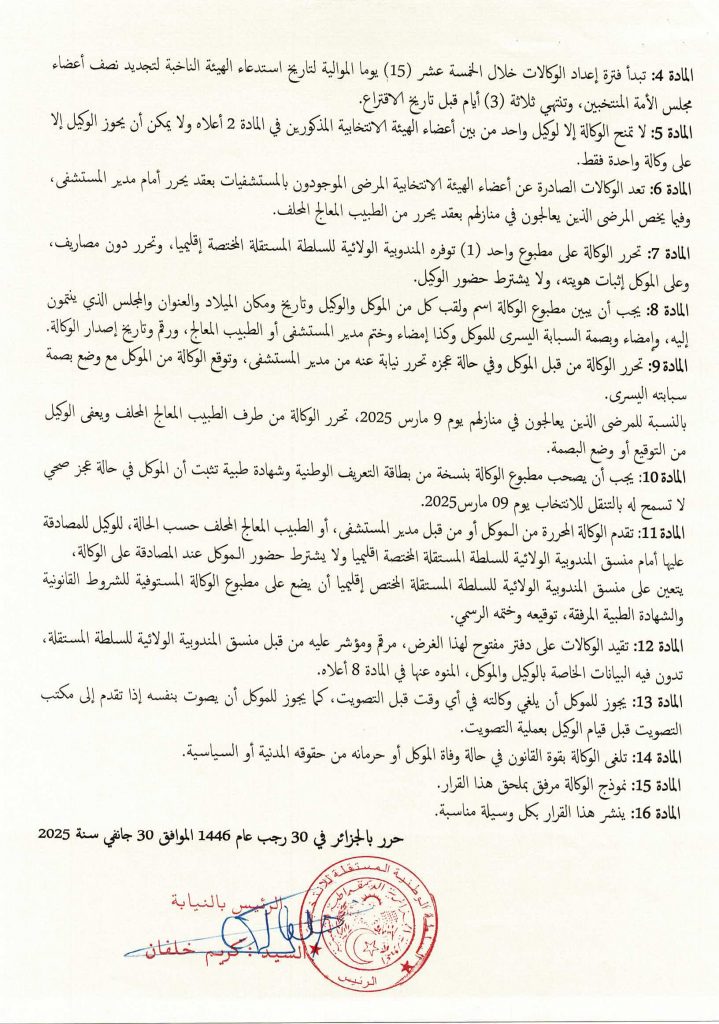 المادة 4: تبدأ فترة إعداد الوكالات خلال الخمسة عشر (15) يوما الموالية لتاريخ استدعاء الهيئة الناخبة لتجديد نصف أعضاء
مجلس الأمة المنتخبين، وتنتهي ثلاثة (3) أيام قبل تاريخ الاقتراع.
المادة 5: لا تمنح الوكالة إلا لوكيل واحد من بين أعضاء الهيئة الانتخابية المذكورين في المادة 2 أعلاه ولا يمكن أن يحوز الوكيل إلا
على وكالة واحدة فقط.
المادة 6: تعد الوكالات الصادرة عن أعضاء الهيئة الانتخابية المرضى الموجودون بالمستشفيات بعقد يحرر أمام مدير المستشفى،
وفيما يخص المرضى الذين يعالجون في منازلهم بعقد يحرر من الطبيب المعالج المحلف.
المادة 7: تحرر الوكالة على مطبوع واحد (1) توفره المندوبية الولائية للسلطة المستقلة المختصة إقليميا، وتحرر دون مصاريف،
وعلى الموكل إثبات هويته، ولا يشترط حضور الوكيل.
المادة 8: يجب أن يبين مطبوع الوكالة اسم ولقب كل من الموكل والوكيل وتاريخ ومكان الميلاد والعنوان والمجلس الذي ينتمون
إليه، وإمضاء وبصمة السبابة اليسرى للموكل وكذا إمضاء وختم مدير المستشفى أو الطبيب المعالج، ورقم وتاريخ إصدار الوكالة.
المادة 9: تحرر الوكالة من قبل الموكل وفي حالة عجزه تحرر نيابة عنه من مدير المستشفى، وتوقع الوكالة من الموكل مع وضع بصمة
سبابته اليسرى.
بالنسبة للمرضى الذين يعالجون في منازلهم يوم 9 مارس 2025، تحرر الوكالة من طرف الطبيب المعالج المحلف ويعفى الوكيل
من التوقيع أو وضع البصمة.
المادة 10: يجب أن يصحب مطبوع الوكالة بنسخة من بطاقة التعريف الوطنية وشهادة طبية تثبت أن الموكل في حالة عجز صحي
لا تسمح له بالتنقل للانتخاب يوم 09 مارس2025.
المادة 11: تقدم الوكالة المحررة من الموكل أو من قبل مدير المستشفى، أو الطبيب المعالج المحلف حسب الحالة، للوكيل للمصادقة
عليها أمام منسق المندوبية الولائية للسلطة المستقلة المختصة إقليميا ولا يشترط حضور الموكل عند المصادقة على الوكالة،
يتعين على منسق المندوبية الولائية للسلطة المستقلة المختص إقليميا أن يضع على مطبوع الوكالة المستوفية للشروط القانونية
والشهادة الطبية المرفقة، توقيعه وختمه الرسمي.
المادة 12: تقيد الوكالات على دفتر مفتوح لهذا الغرض، مرقم ومؤشر عليه من قبل منسق المندوبية الولائية للسلطة المستقلة،
تدون فيه البيانات الخاصة بالوكيل والموكل، المنوه عنها في المادة 8 أعلاه.
المادة 13: يجوز للموكل أن يلغي وكالته في أي وقت قبل التصويت، كما يجوز للموكل أن يصوت بنفسه إذا تقدم إلى مكتب
التصويت قبل قيام الوكيل بعملية التصويت.
المادة 14: تلغى الوكالة بقوة القانون في حالة وفاة الموكل أو حرمانه من حقوقه المدنية أو السياسية.
المادة 15: نموذج الوكالة مرفق بملحق هذا القرار.
المادة 16: ينشر هذا القرار بكل وسيلة مناسبة.
حرر بالجزائر في 30 رجب عام 1446 الموافق 30 جانفي سنة 2025
الرئيس بالنيابة
السيد : كريم خلفان
الرئيس